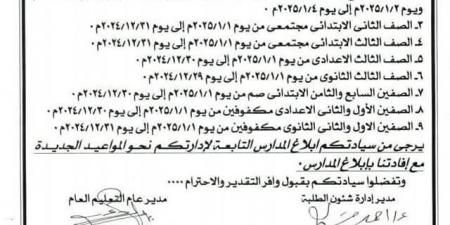 ويوم ٢٠٢٥/١/٢م إلى يوم ٢٠٢٥/١/٤م٠
٣- الصف الثانى الابتدائى مجتمعى من يوم ٢٠٢٥/١/١م إلى يوم ٢٠٢٤/١٢/٣١م٠
٤- الصف الثالث الابتدائى مجتمعى من يوم ٢٠٢٥/١/١م إلى يوم ٢٠٢٤/١٢/٣١م٠
٥- الصف الثالث الاعدادى من يوم ٢٠٢٥/١/١م إلى يوم ٢٠٢٤/١٢/٣٠م٠
٦- الصف الثالث الثانوى من يوم ٢٠٢٥/١/١م إلى يوم ٢٠٢٤/١٢/٢٩م٠
٧- الصفين السابع والثامن الابتدائى صم من يوم ٢٠٢٥/١/١م إلى يوم ٢٠٢٤/١٢/٣٠م٠
٨- الصفين الأول والثانى الاعدادى مكفوفين من يوم ٢٠٢٥/١/١م إلى يوم ٢٠٢٤/١٢/٣٠م٠
٩- الصفين الاول والثانى الثانوى مكفوفين من يوم ٢٠٢٥/١/١م إلى يوم ٢٠٢٤/١٢/٣١م٠
يرجى من سيادتكم ابلاغ المدارس التابعة لإدارتكم نحو المواعيد الجديدة
مع إفادتنا بإبلاغ المدارس٠
وتفضلوا سيادتكم بقبول وافر التقدير والاحترام ٠٠٠٠
مدير إدارة شئون الطلبة
مدير عام التعليم العام